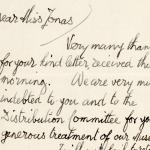 ear Miss Jonas
Very many than
for your kind letter received the
morning. We are very mu
indebted to you and to the
Distribution Committee for yo
generous treatment of our Muse